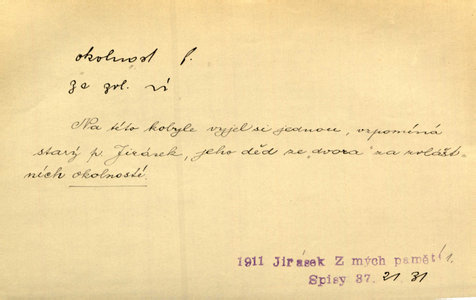 okolnost f.
ze zvl. ú
Na této kobyle vyjel si jednou, vzpomíná
starý p. Jirásek, jeho děd ze „dvora" za zvlášt-
ních okolností.
1911 Jirásek Z mých pamětí 1.
Spisy 37. 21 31